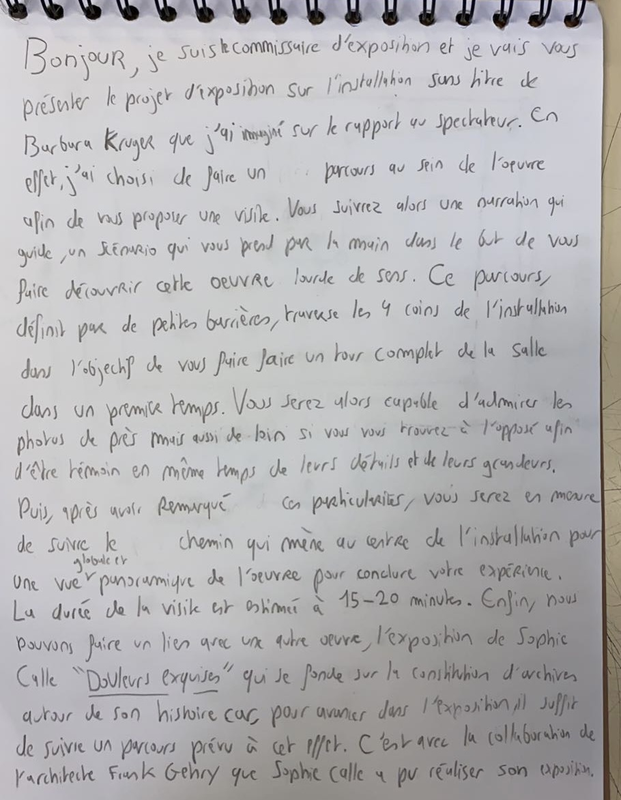 Bonjour, je suis le commissaire d'exposition et je vais vous
présenter le projet d'exposition sur l'installation sans titre de
Barbara Kruger que j'ai imaginé sur le rapport au spectateur. En
effet, j'ai choisi de faire un parcours au sein de l'oeuvre
afin de vous proposer une visite. Vous suivrez alors une narration qui
guide, un scénario qui vous prend par la main dans le but de vous
faire découvrir cette oeuvre lourde de sens. Ce parcours,
définit par de petites barrières, traverse les 4 coins de l'installation
dans l'objectif de vous faire faire un tour complet de la salle
dans un premier temps. Vous serez alors capable d'admirer les
photos de près mais aussi de loin si vous vous trouvez à l'opposé afin
d'être témoin en même temps de leurs détails et de leurs grandeurs.
Puis, après avoir remarqué ces particularités, vous serez en mesure
de suivre le chemin qui mène au centre de l'installation pour
une vue globale et panoramique de l'oeuvre pour conclure votre expérience.
La durée de la visite est estimée à 15-20 minutes. Enfin, nous
pouvons faire un lien avec une autre oeuvre, l'exposition de Sophie
Calle "Douleurs exquises" qui se fonde sur la constitution d'archives
autour de son histoire car, pour avancer dans l'exposition, il suffit
de suivre un parcours prévu à cet effet. C'est avec la collaboration de
l'architecte Frank Gehry que Sophie Calle a pu réaliser son exposition.